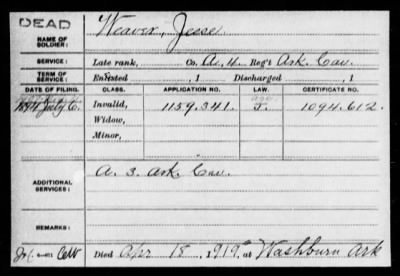 DEAD
NAME OF SOLDIER: Weaver, Jesse
SERVICE: Late rank, Co. A, 4, Reg't Ark. Cav.
TERM OF SERVICE: Enlisted , 1 Discharged , 1
DATE OF FILING. CLASS. APPLICATION NO. LAW. CERTIFICATE NO.
1894 July 6. Invalid, 1159.341. J. 1094.612.
Widow,
Minor,
ADDITIONAL SERVICES: A. 3. Ark. Cav.
REMARKS:
Died Apr 18, 1919, at Washburn Ark